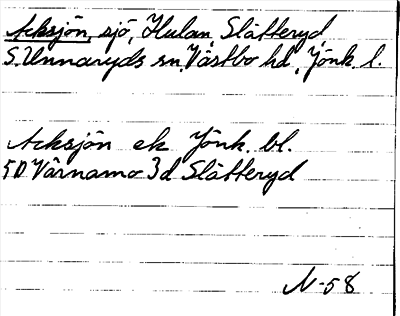 Acksjön, sjö, Hulan, Slätteryd,
S. Unnaryds sn, Västbo hd, Jönk. l.
Acksjön ek Jönk. bl.
5D Värnamo 3d Slätteryd
N-58